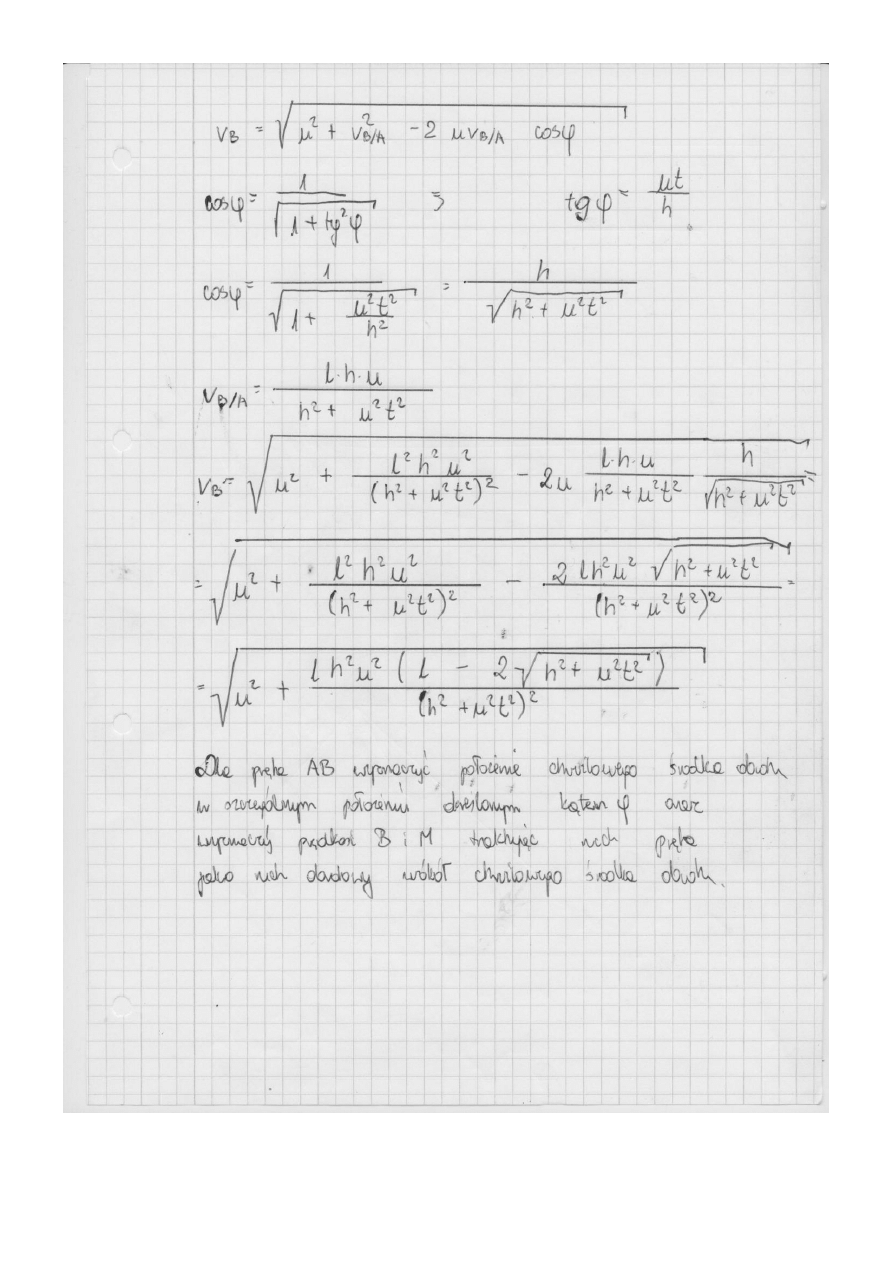 v_B = √(u² + v²_B/A - 2 u v_B/A cosφ)
cosφ = 1 / √(1 + tg²φ) ⇒ tg φ = ut / h
cosφ = 1 / √(1 + u²t²/h²) = h / √(h² + u²t²)
v_B/A = l·h·u / (h² + u²t²)
v_B = √(u² + l²h²u² / (h² + u²t²)² - 2u l·h·u / (h² + u²t²) h / √(h² + u²t²)) =
= √(u² + l²h²u² / (h² + u²t²)² - 2lh²u² √(h² + u²t²) / (h² + u²t²)²) =
= √(u² + lh²u² (l - 2√(h² + u²t²)) / (h² + u²t²)²)
Dla pręta AB wyznaczyć położenie chwilowego środka obrotu
w szczególnym położeniu określonym kątem φ oraz
wyznaczyć prędkość B i M traktując ruch pręta
jako ruch obrotowy wokół chwilowego środka obrotu.